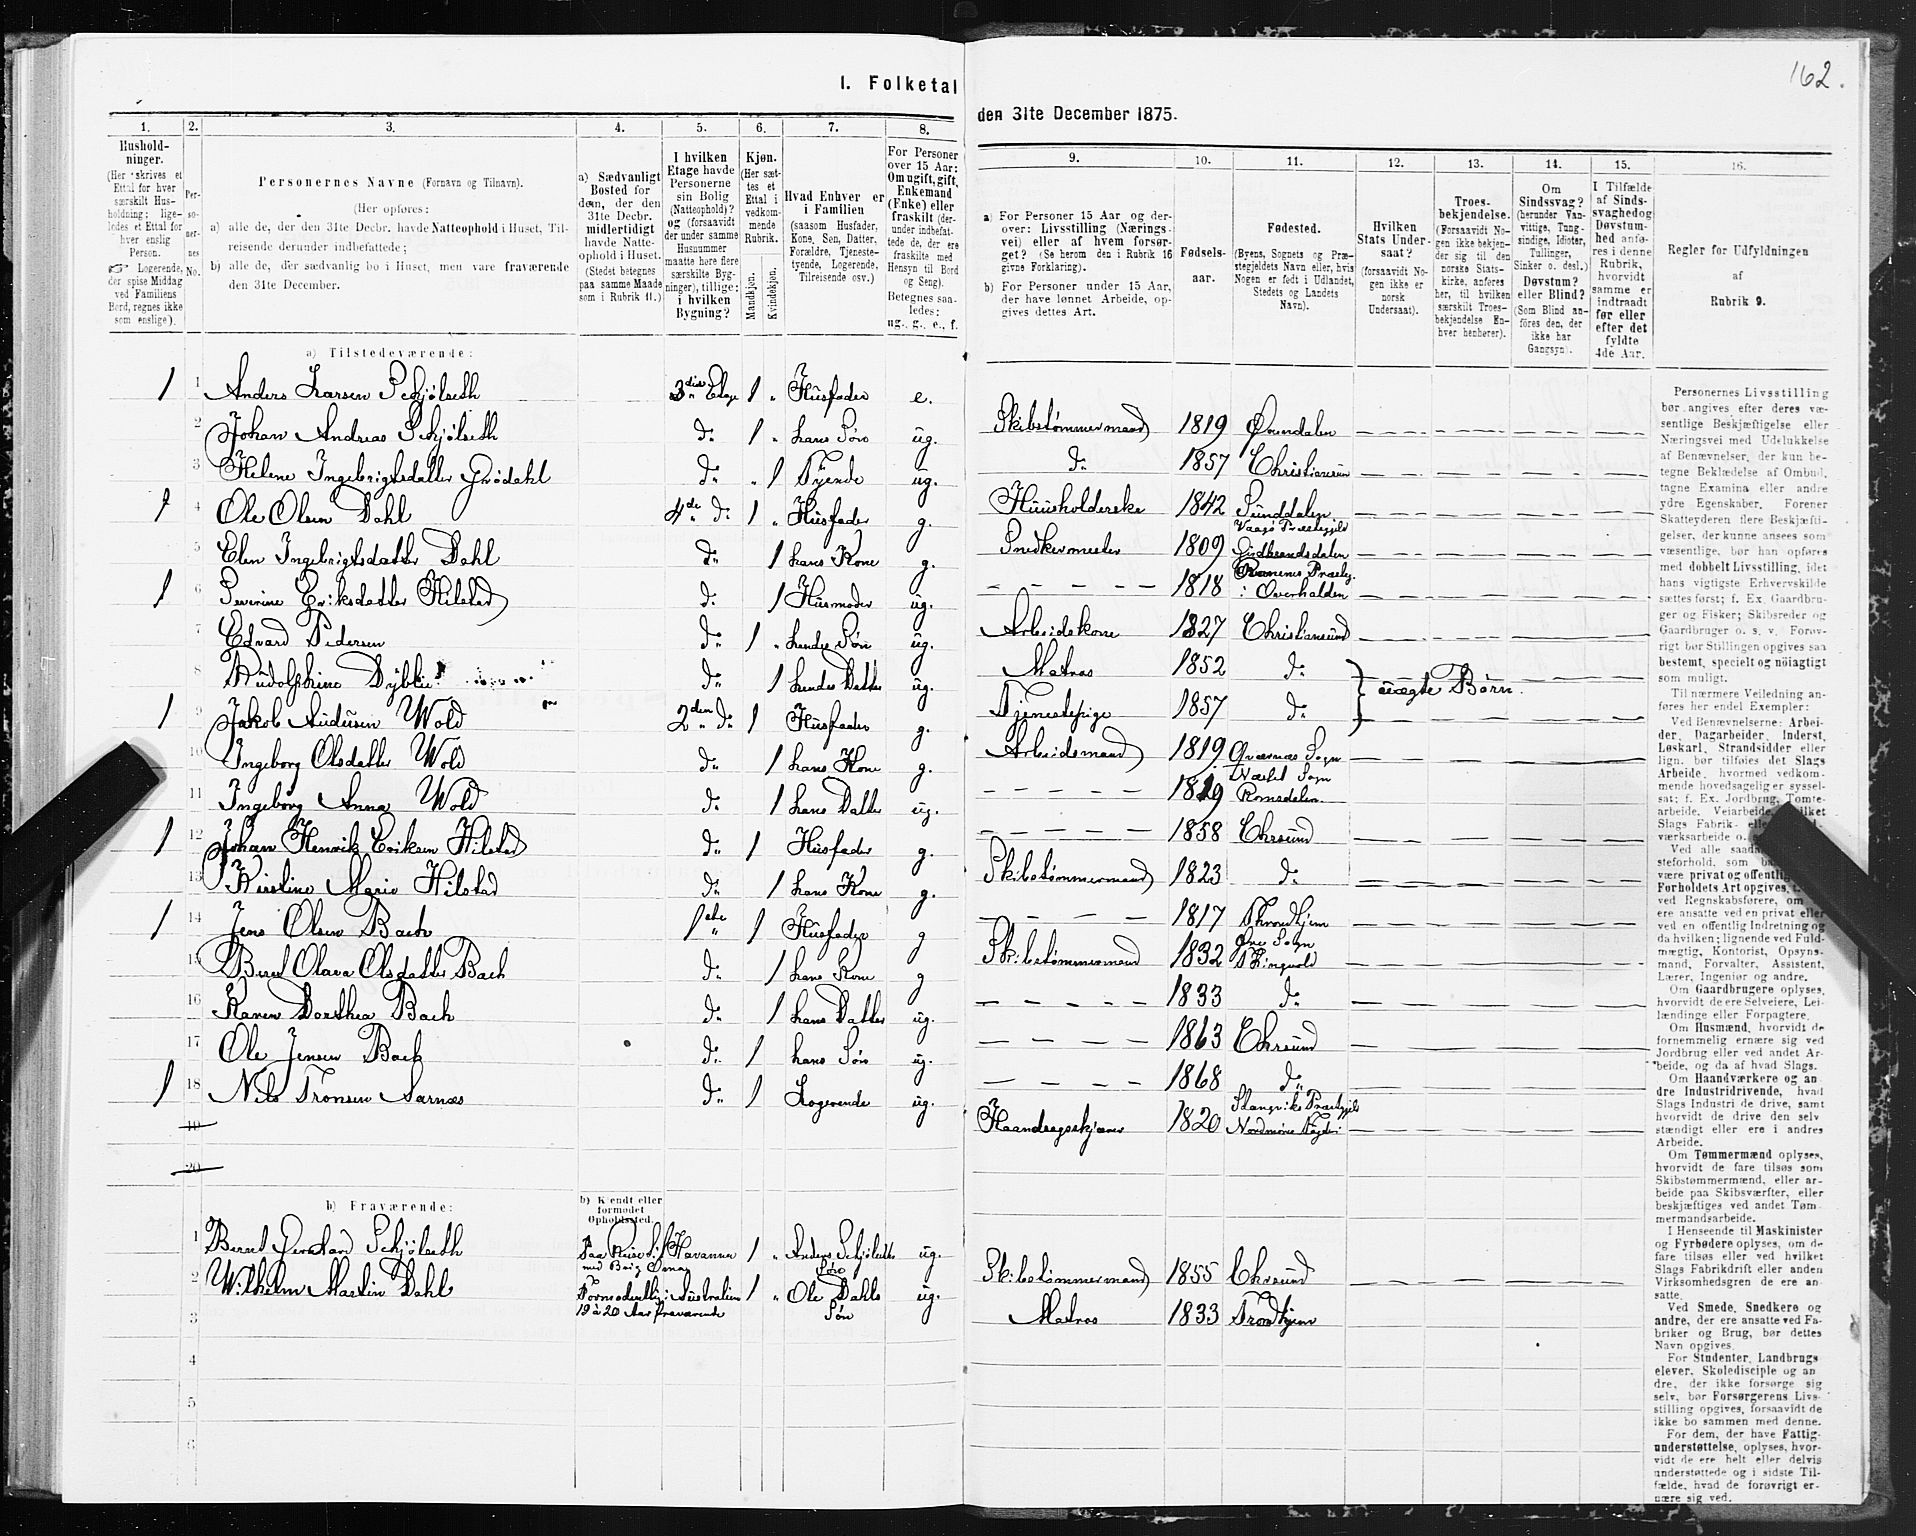 162.
I. Folketal
den 31te December 1875.
1. 2. 3. 4. 5. 6. 7. 8.
9. 10. 11. 12. 13. 14. 15. 16.
Hushold-
ninger.
(Her skrives et
Ettal for hver
særskilt Hus-
holdning; lige-
ledes et Ettal for
hver enslig
Person.
Logerende,
der spise Middag
ved Familiens
Bord, regnes ikke
som enslige).
Per-
so-
ner-
nes
No.
Personernes Navne (Fornavn og Tilnavn).
(Her opføres:
a) alle de, der den 31te Decbr. havde Natteophold i Huset, Til-
reisende derunder indbefattede;
b) alle de, der sædvanlig bo i Huset, men vare fraværende
den 31te December.
a) Sædvanligt
Bosted for
dem, der den
31te Decbr.
midlertidigt
havde Natte-
ophold i Huset.
(Stedet betegnes
paa samme Maade
som i Rubrik 11.)
I hvilken
Etage havde
Personerne
sin Bolig
(Natteophold)?
og (forsaavidt
der under samme
Husnummer
maatte høre flere
særskilte Byg-
ninger), tillige:
i hvilken
Bygning?
Kjøn.
(Her sæt-
tes et
Ettal i
vedkom-
mende
Rubrik.
Mandkjøn.
Kvindekjøn.
Hvad Enhver er
i Familien
(saasom Husfader,
Kone, Søn, Datter,
Forældre, Tjeneste-
tyende, Logerende,
Tilreisende osv.)
For Personer
over 15 Aar:
Om ugift, gift,
Enkemand
(Enke) eller
fraskilt (der-
under indbefat-
tede de, der ere
fraskilte med
Hensyn til Bord
og Seng).
Betegnes saa-
ledes:
ug., g., e., f.
a) For Personer 15 Aar og der-
over: Livsstilling (Nærings-
vei) eller af hvem forsør-
get? (Se herom den i Rubrik 16
givne Forklaring).
b) For Personer under 15 Aar,
der have lønnet Arbeide, op-
gives dettes Art.
Fødsels-
aar.
Fødested.
(Byens, Sognets og Præ-
stegjeldets Navn eller, hvis
Nogen er født i Udlandet,
Stedets og Landets
Navn).
Hvilken
Stats Under-
saat?
(forsaavidt No-
gen ikke er
norsk
Undersaat).
Troes-
bekjendelse.
(Forsaavidt No-
gen ikke bekjen-
der sig til den
norske Stats-
kirke, anføres
her, til hvilken
særskilt Troes-
bekjendelse En-
hver henhører).
Om
Sindssvag?
(herunder Van-
vittige, Tung-
sindige, Idioter,
Tullinger,
Sinker o. desl.)
Døvstum?
eller Blind?
(Som Blind an-
føres den, der
ikke har
Gangsyn).
I Tilfælde
af Sinds-
svaghed og
Døvstum-
hed anfø-
res i denne
Rubrik,
hvorvidt
samme er
indtraadt
før eller
efter det
fyldte
4de Aar.
Regler for Udfyldningen
af
Rubrik 9.
a) Tilstedeværende:
1 1 Anders Larsen Schjølseth 3die Etage 1 „ Husfader e. Skibstømmermand 1819 Ørundalen
2 Johan Andreas Schjølseth do 1 „ hans Søn ug. do 1857 Christiansund
3 Helene Ingebrigtsdatter Grødahl do „ 1 Tyende ug. Huusholderske 1842 Sunddalen
1 4 Ole Olsen Dahl 4de do 1 „ Husfader g. Snedkermester 1809 Vaage Præstegjeld Gudbrandsdalen
5 Elen Ingebrigtsdatter Dahl do 1 hans Kone g. 1818 Ranems Præsteg. i Overhalden
1 6 Severine Eriksdatter Hilstad do 1 Husmoder ug. Arbeidskone 1827 Christiansund
7 Edvard Pedersen do 1 „ hendes Søn ug. Matros 1852 do
8 Rudolphine Dybblie do 1 hendes Datter ug. Tjenestepige 1857 do } uægte Børn.
1 9 Jakob Knudsen Wold 2den do 1 Husfader g. Arbeidsmand 1819 Qvernæs Sogn
10 Ingeborg Olsdatter Wold do 1 hans Kone g. 1819 Næsset Sogn Romsdalen
11 Ingeborg Anna Wold do 1 hans Datter ug. 1858 Chrsund
1 12 Johan Henrik Eriksen Hilstad do 1 Husfader g. Skibstømmermand 1823 do
13 Kirstine Marie Hilstad do 1 hans Kone g. 1817 Throndhjem
1 14 Jens Olsen Bach 1ste „ 1 Husfader g Skibstømmermand 1832 Øre Sogn Thingvold
15 Beret Olava Olsdatter Bach do 1 hans Kone g 1833 do
16 Karen Dorthea Bach do 1 hans Datter ug. 1863 Chrsund
17 Ole Jensen Bach do 1 hans Søn ug. 1868 do
1 18 Nils Tronsen Aarnæs do 1 Logerende ug. Haandlangerskjører 1820 Stangviks Præstegjeld Nordmøre Fogderi
19
20
b) Fraværende:
b) Kjendt eller
formodet
Opholdssted.
1 Bernt Gerhard Schjølseth Paa Reise til Havanna med Brig Ørnen 1 „ Anders Schjølseths Søn ug. Skibstømmermand 1855 Chrsund
2 Wilhelm Martin Dahl Formodentlig i Australien 19 à 20 Aar fraværende 1 „ Ole Dahls Søn ug. Matros 1833 Trondhjem
3
4
5
6
Personernes Livsstilling
bør angives efter deres væ-
sentlige Beskjæftigelse eller
Næringsvei med Udelukkelse
af Benævnelser, der kun be-
tegne Beklædelse af Ombud,
tagne Examina eller andre
ydre Egenskaber. Forener
Skatteyderen flere Beskjæfti-
gelser, der kunne ansees som
væsentlige, bør han opføres
med dobbelt Livsstilling, idet
hans vigtigste Erhvervskilde
sættes først; f. Ex. Gaardbru-
ger og Fisker; Skibsreder og
Gaardbruger o. s. v. Forøv-
rigt bør Stillingen opgives saa
bestemt, specielt og nøiagtigt
som muligt.
Til nærmere Veiledning an-
føres her endel Exempler:
Ved Benævnelserne: Arbei-
der, Dagarbeider, Inderst,
Løskarl, Strandsidder eller
lign. bør tilføies det Slags
Arbeide, hvormed vedkom-
mende hovedsagelig er syssel-
sat; f. Ex. Jordbrug, Tomte-
arbeide, Veiarbeide, hvilket
Slags Fabrik- eller
værksarbeide o.
Ved alle saadanne
steforhold, som
være privat og offentlig
Forholdets Art opgives,
ved Regnskabsførere, om
ere ansatte ved en privat eller
ved en offentlig Indretning og
da hvilken; lignende ved Fuld-
mægtig, Kontorist, Opsyns-
mand, Forvalter, Assistent,
Lærer, Ingeniør og andre.
Om Gaardbrugere oplyses,
hvorvidt de ere Selveiere, Lei-
lændinge eller Forpagtere.
Om Husmænd, hvorvidt de
fornemmelig ernære sig ved
Jordbrug eller ved andet Ar-
beide, og da af hvad Slags.
Om Haandværkere og an
dre Industridrivende, hvad
Slags Industri de drive, samt
hvorvidt de drive den selv
stændigt eller ere i andres
Arbeide.
Om Tømmermænd oplyses,
hvorvidt de fare tilsøs som
Skibstømmermænd, eller ar-
beide paa Skibsværfter, eller
beskjæftiges ved andet Tøm-
mermandsarbeide.
I Henseende til Maskinister
og Fyrbødere oplyses, om de
fare tilsøs eller ved hvilket
Slags Fabrikdrift eller anden
Virksomhedsgren de ere an-
satte.
Ved Smede, Snedkere og
andre, der ere ansatte ved Fa-
briker og Brug, bør dettes
Navn opgives.
For Studenter, Landbrugs
elever, Skoledisciple og an
dre, der ikke forsørge sig
selv, bør Forsørgerens Livs-
stilling opgives, forsaavidt de
ikke bo sammen med denne.
For dem, der have Fattig-
understøttelse, oplyses, hvor-
vidt de ere helt eller delvis
understøttede og i sidste Til-
fælde, hvad de forøvrigt er-
nære sig ved.